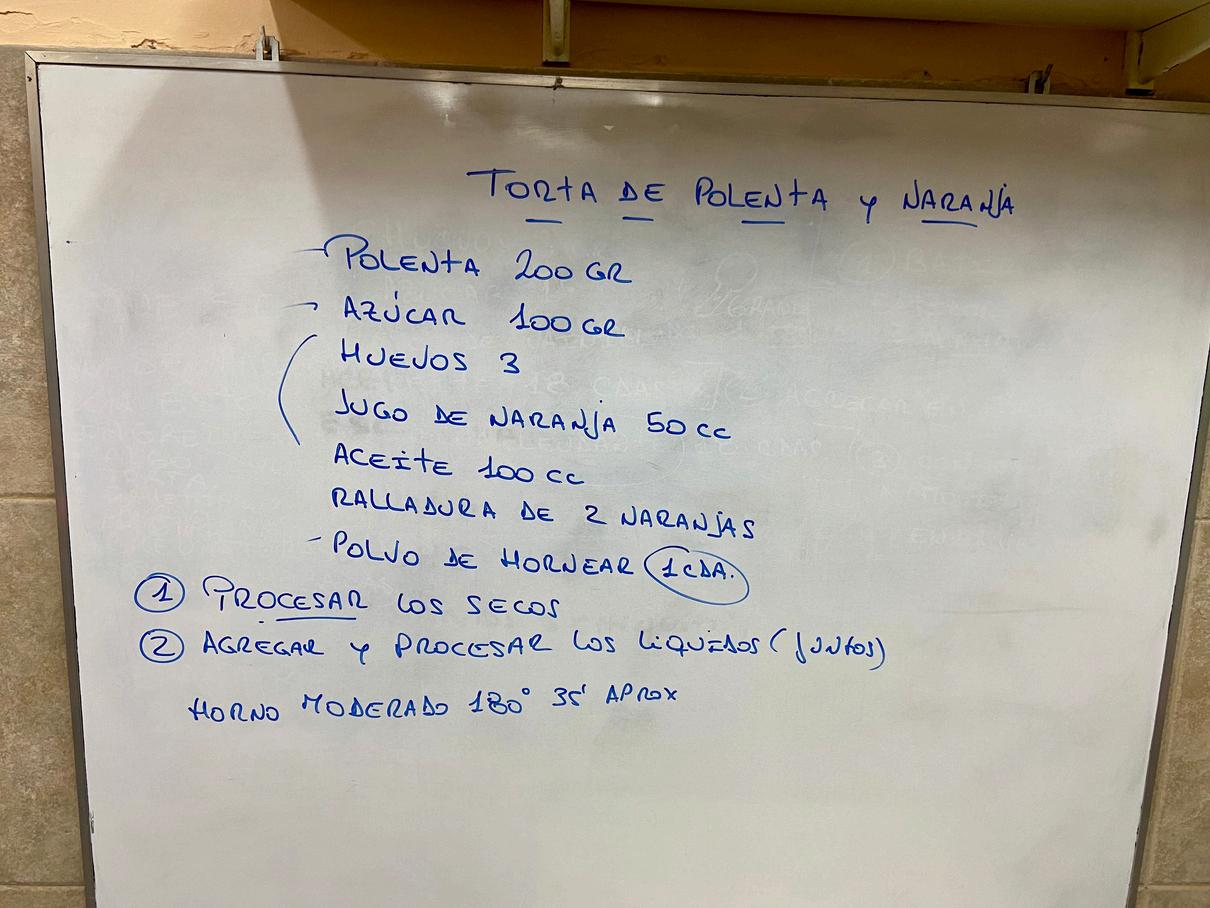 TORTA DE POLENTA y NARANJA
- POLENTA 200 GR
- AZÚCAR 100 GR
HUEVOS 3
JUGO DE NARANJA 50 CC
ACEITE 100 CC
RALLADURA DE 2 NARANJAS
- POLVO DE HORNEAR 1 CDA.
1 PROCESAR LOS SECOS
2 AGREGAR y PROCESAR LOS LIQUIDOS (JUNTOS)
HORNO MODERADO 180° 35' APROX